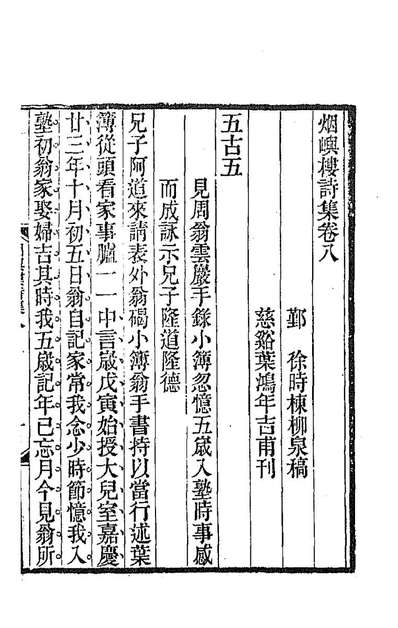 烟嶼樓詩集卷八
鄞　徐時棟柳泉稿
慈谿葉鴻年吉甫刊
五古五
見周翁雲巖手錄小簿忽憶五歲入塾時事感
而成詠示兄子隆道隆德
兄子阿道來請表外翁碣小簿翁手書持以當行述葉
簿從頭看家事臚一一中言歲戊寅始授大兒室嘉慶
廿三年十月初五日翁自記家常我念少時節憶我入
塾初翁家娶婦吉其時我五歲記年已忘月今見翁所